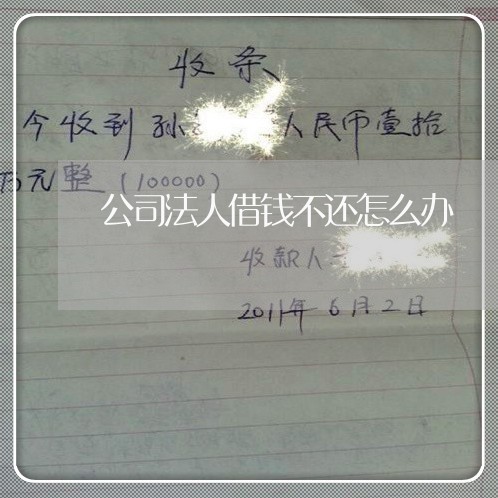 收条
今收到孙 人民币壹拾
万元整(100000)
公司法人借钱不还怎么办
收款人
2011年6月2日